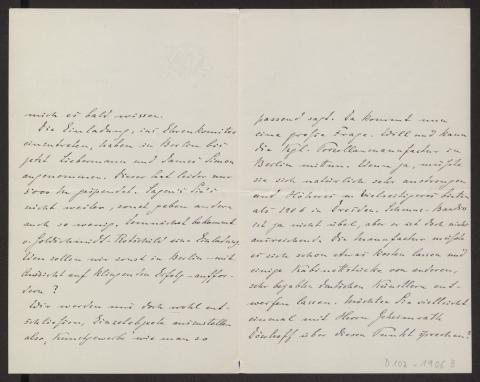 mich es bald wissen.
Die Einladung, ins Ehrenkomitee
einzutreten, haben in Berlin bis
jetzt Liebermann und James Simon
angenommen. Dieser hat leider nur
gespendet. Sagen Sie's
nicht weiter, sonst geben andere
auch so wenig. Demnächst bekommt
v. Goldschmidt-Rothschild eine Einladung.
Wen sollen wir sonst in Berlin - mit
Aussicht auf klingenden Erfolg - auffor-
dern?
Wir werden uns doch wohl ent-
schließen, Einzelobjecte auszustellen
also, Kunstgewerbe wie man so
passend sagt. Da kommt nun
eine große Frage. Will und kann
die Kgl. Porzellanmanufactur in
Berlin mittun. Wenn ja, müßte
sie sich natürlich sehr anstrengen
und Höheres u Vielseitigeres bieten
als 1906 in Dresden. Schmuz-Baudiss
ist ja nicht übel, aber er ist doch nicht
ausreichend. Die Manufactur müßte
es sich schon etwas kosten lassen und
einige Kabinettstücke von anderen,
sehr begabten deutschen Künstlern ent-
werfen lassen. Möchten Sie vielleicht
einmal mit Herrn Geheimrath
Dönhoff über diesen Punkt sprechen?
D 102 - 1906 B